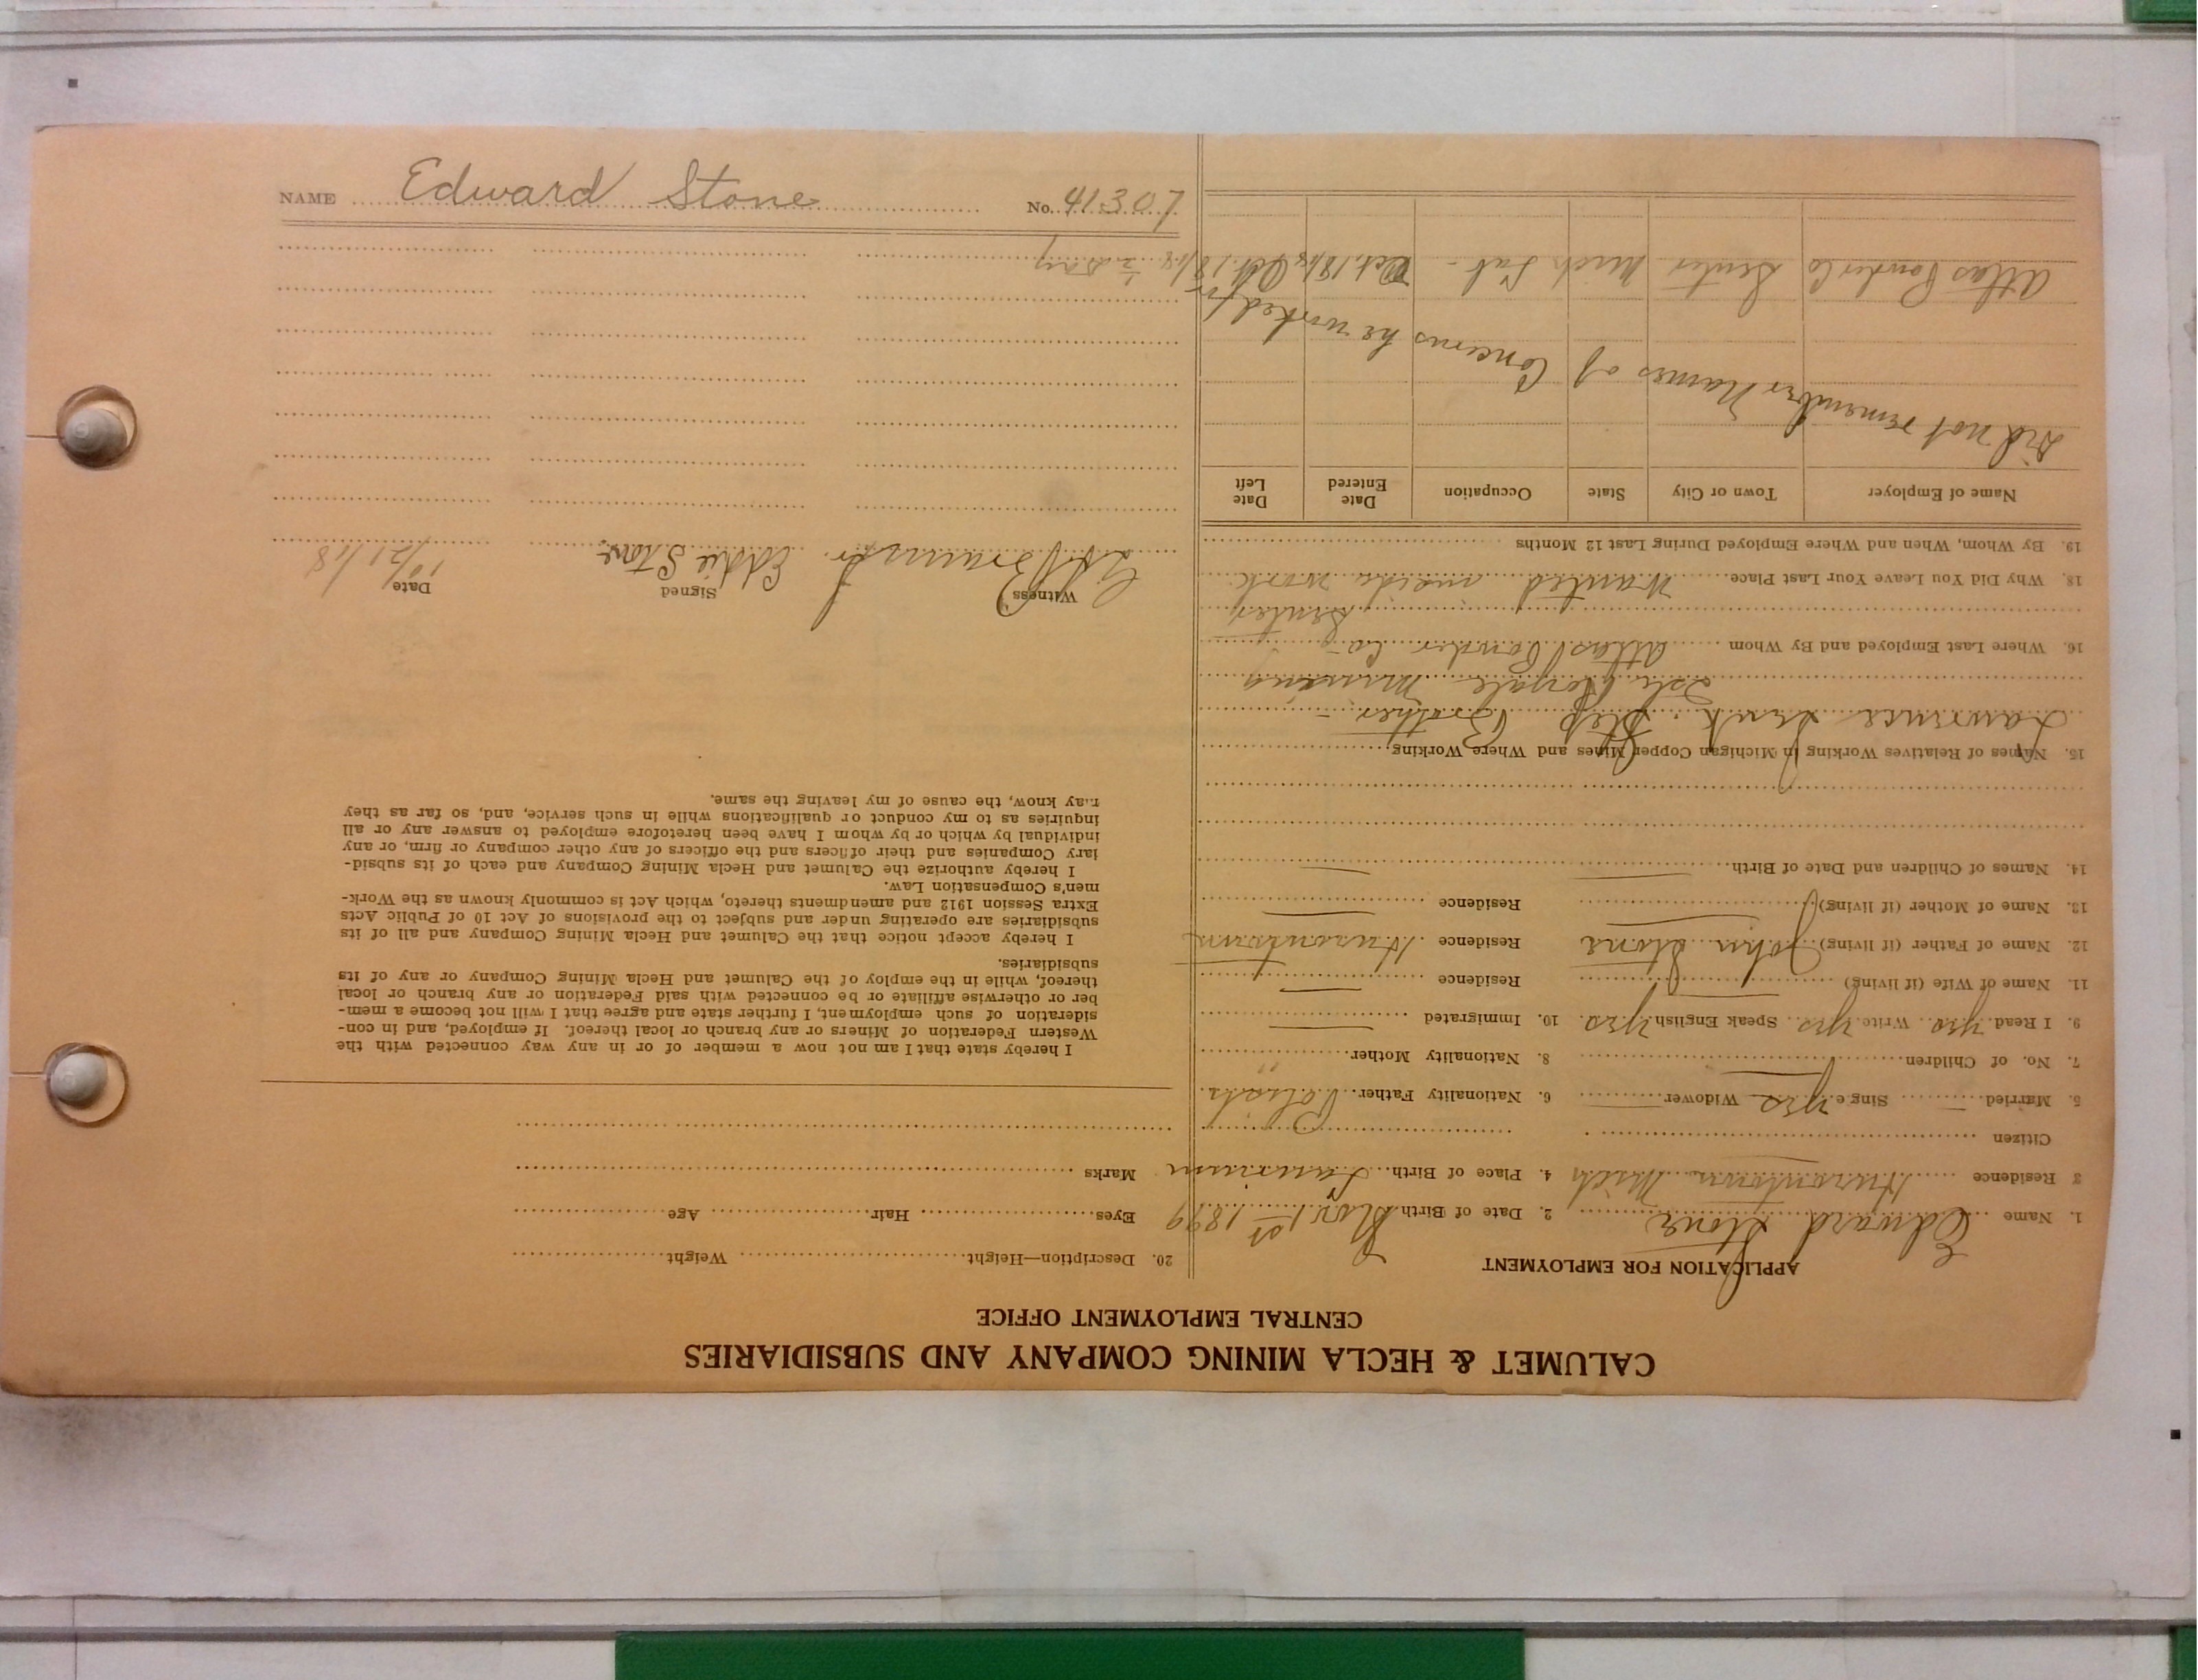 NAME Edward Stone No. 41307
CALUMET & HECLA MINING COMPANY AND SUBSIDIARIES
CENTRAL EMPLOYMENT OFFICE
APPLICATION FOR EMPLOYMENT
1. Name Edward Stone 2. Date of Birth Nov 1st 1899
3 Residence Hurontown Mich 4. Place of Birth Laurium
Citizen
5. Married — Single yes Widower —
6. Nationality Father Polish
7. No. of Children — 8. Nationality Mother
9. I Read yes Write yes Speak English yes 10. Immigrated —
11. Name of Wife (if living) — Residence —
12. Name of Father (if living) John Stone Residence Hurontown
13. Name of Mother (if living) — Residence —
14. Names of Children and Date of Birth — —
15. Names of Relatives Working in Michigan Copper Mines and Where Working
Lawrence Step Brother -
Isle Royale Mining
16. Where Last Employed and By Whom Atlas Powder Co -
Senter
18. Why Did You Leave Your Last Place Wanted inside work
19. By Whom, When and Where Employed During Last 12 Months
Name of Employer Town or City State Occupation Date Entered Date Left
Did not remember Names of Concerns he worked for
Atlas Powder Co Senter Mich Lab - Oct 18/18 Oct 18/18 ½ day
20. Description—Height Weight
Eyes Hair Age
Marks
I hereby state that I am not now a member of or in any way connected with the
Western Federation of Miners or any branch or local thereof. If employed, and in con-
sideration of such employment, I further state and agree that I will not become a mem-
ber or otherwise affiliate or be connected with said Federation or any branch or local
thereof, while in the employ of the Calumet and Hecla Mining Company or any of its
subsidiaries.
I hereby accept notice that the Calumet and Hecla Mining Company and all of its
subsidiaries are operating under and subject to the provisions of Act 10 of Public Acts
Extra Session 1912 and amendments thereto, which Act is commonly known as the Work-
men's Compensation Law.
I hereby authorize the Calumet and Hecla Mining Company and each of its subsid-
iary Companies and their officers and the officers of any other company or firm, or any
individual by which or by whom I have been heretofore employed to answer any or all
inquiries as to my conduct or qualifications while in such service, and, so far as they
may know, the cause of my leaving the same.
Witness Signed Date
Eddie Stone 10/21/18